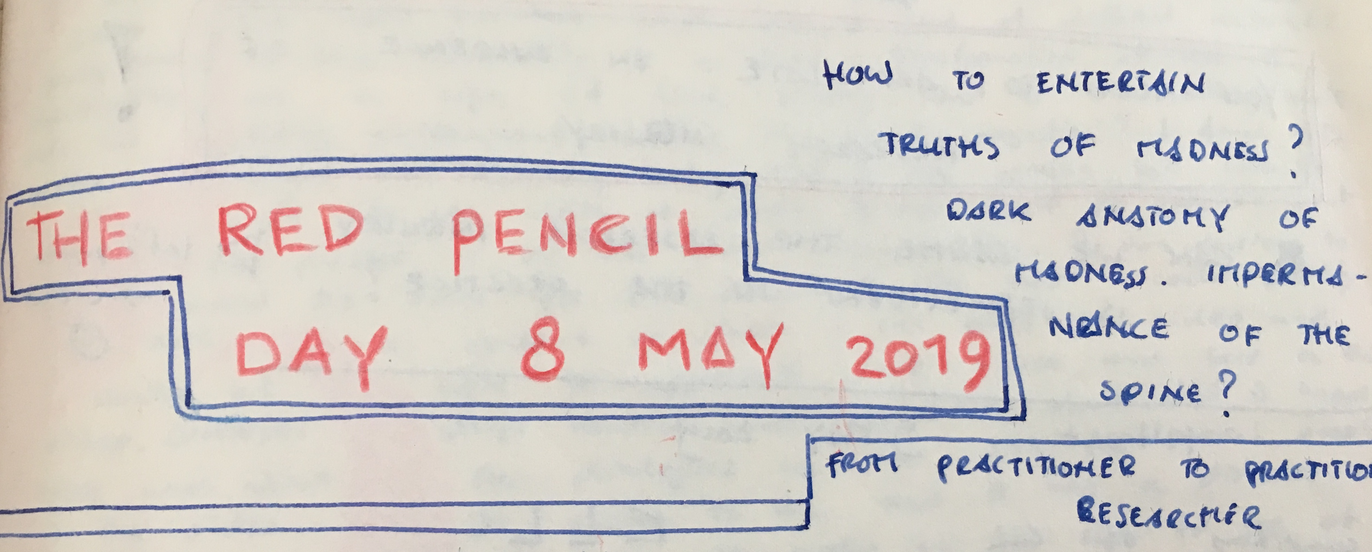 HOW TO ENTERTAIN
TRUTHS OF MADNESS?
DARK ANATOMY OF
MADNESS. IMPERMA-
NENCE OF THE
SPINE?
THE RED PENCIL
DAY 8 MAY 2019
FROM PRACTITIONER TO PRACTITIO
RESEARCHER